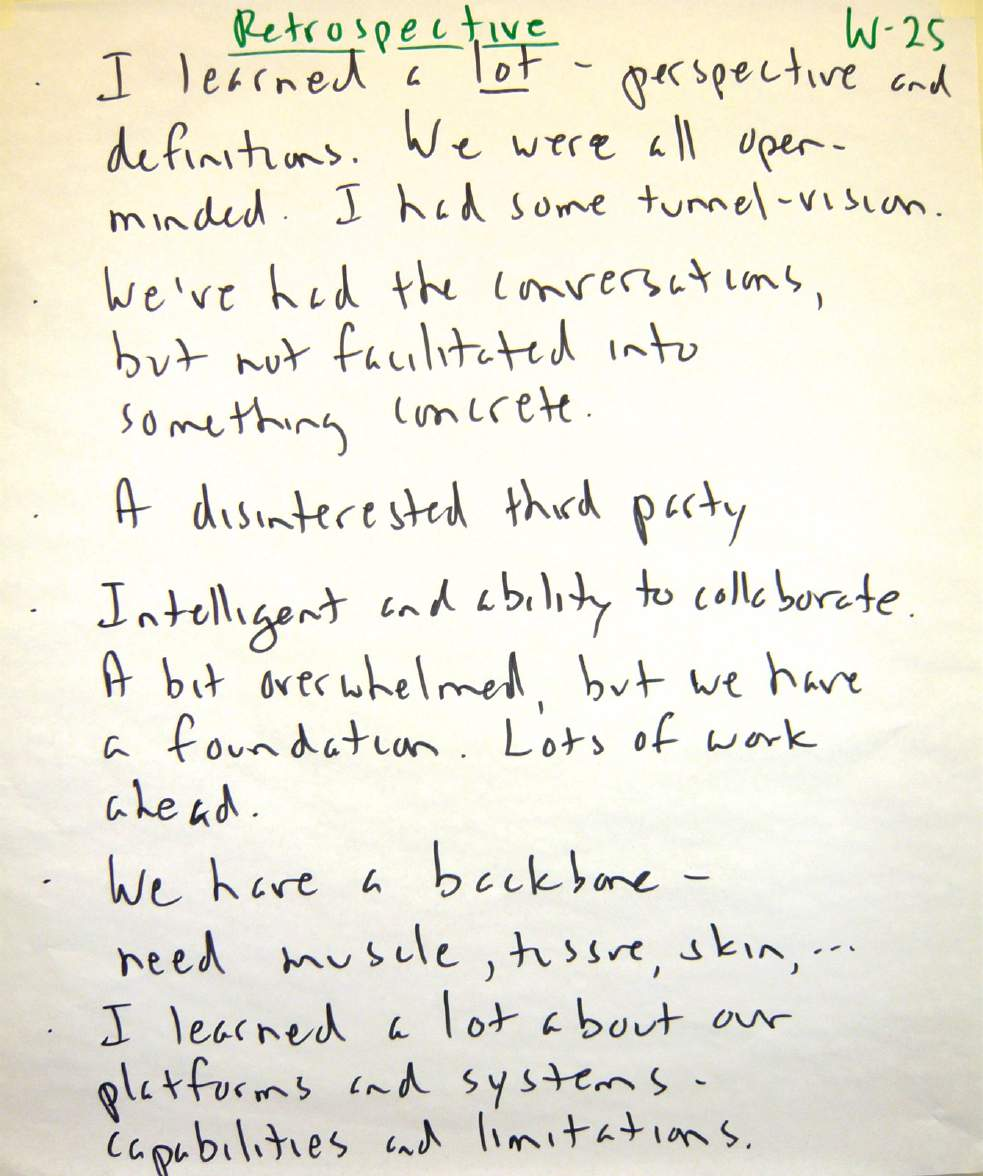 Retrospective W-25
· I learned a lot - perspective and
definitions. We were all open-
minded. I had some tunnel-vision.
· We've had the conversations,
but not facilitated into
something concrete.
· A disinterested third party
· Intelligent and ability to collaborate.
A bit overwhelmed, but we have
a foundation. Lots of work
ahead.
· We have a backbone -
need muscle, tissue, skin, ...
· I learned a lot about our
platforms and systems -
capabilities and limitations.